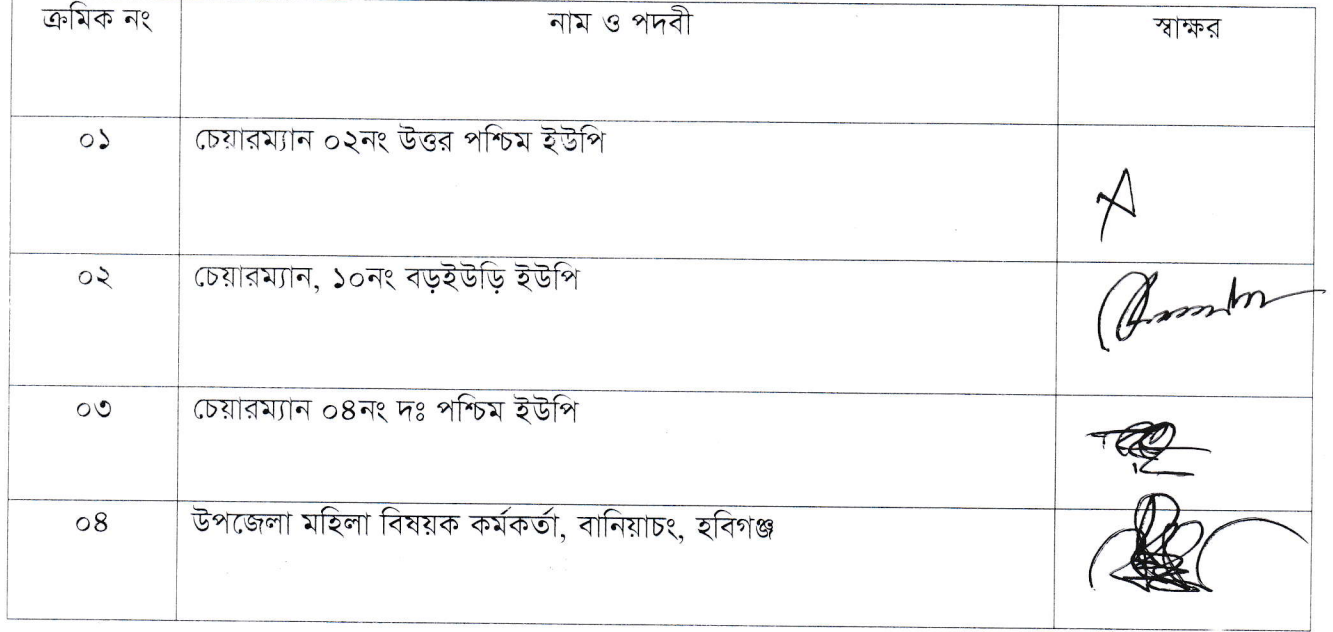 ক্রমিক নং নাম ও পদবী স্বাক্ষর
০১ চেয়ারম্যান ০২নং উত্তর পশ্চিম ইউপি
০২ চেয়ারম্যান, ১০নং বড়ইউড়ি ইউপি
০৩ চেয়ারম্যান ০৪নং দঃ পশ্চিম ইউপি
০৪ উপজেলা মহিলা বিষয়ক কর্মকর্তা, বানিয়াচং, হবিগঞ্জ